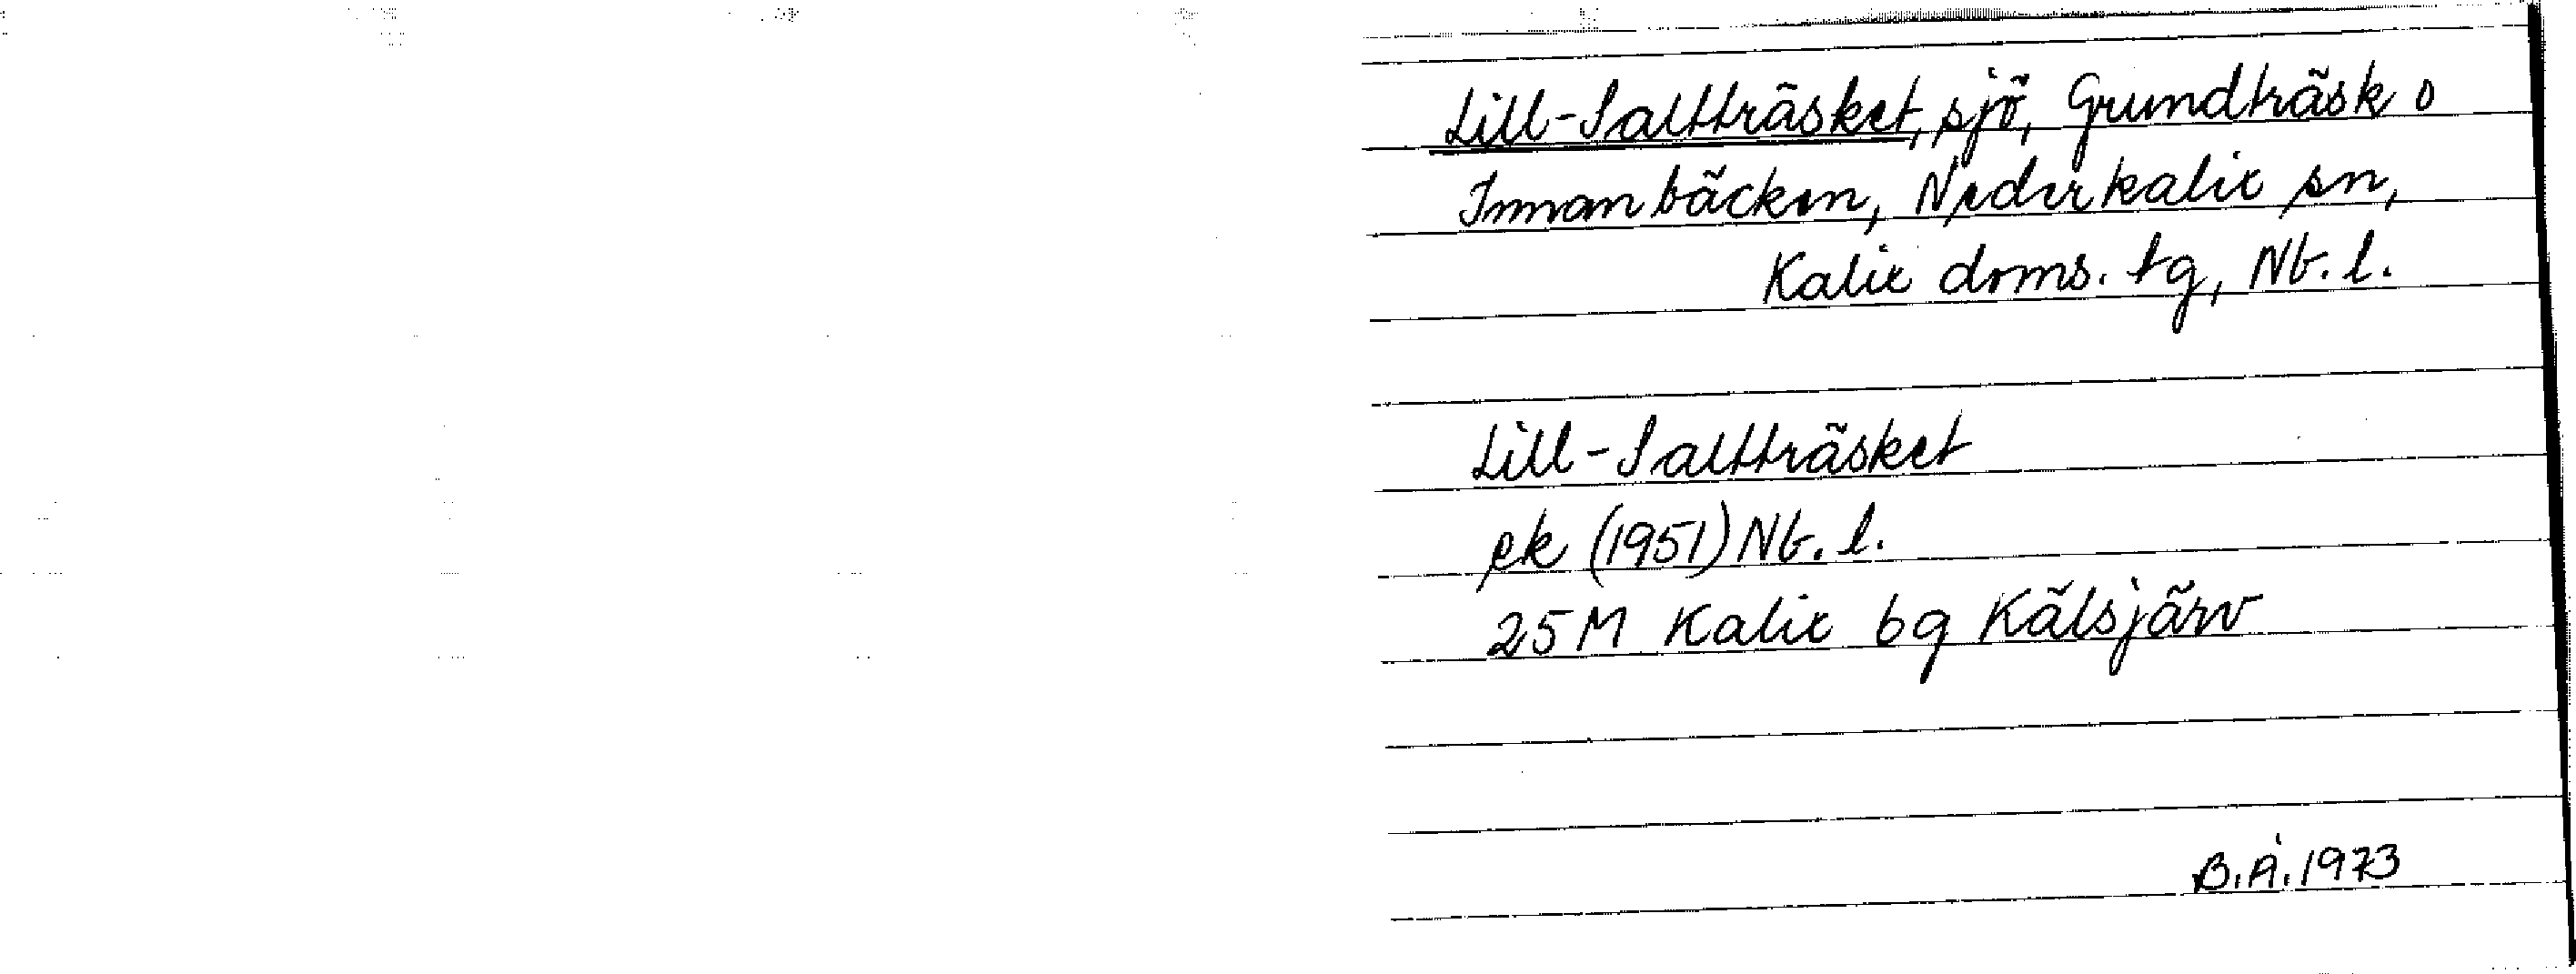 Lill-Saltträsket, sjö, Grundträsk o
Innanbäcken, Nederkalix sn,
Kalix doms. tg, Nb. l.
Lill-Saltträsket
ek (1951) Nb. l.
25 M Kalix bg Kälsjärv
B.Å. 1973